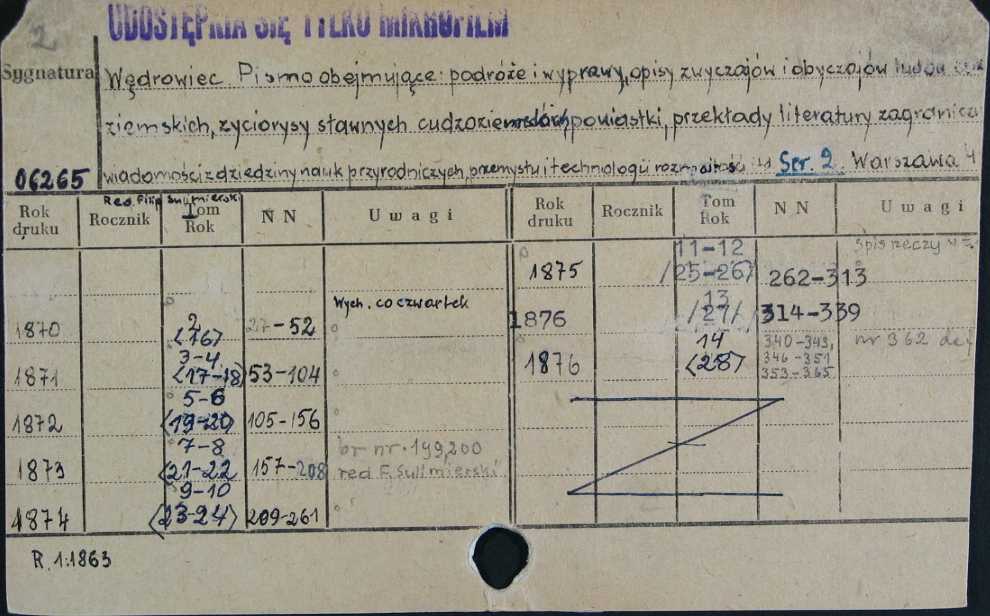 2
UDOSTĘPNIA SIĘ TYLKO MIKROFILM
Sygnatura
Wędrowiec Pismo obejmujące: podróże i wyprawy, opisy zwyczajów i obyczajów ludów
ziemskich, życiorysy sławnych cudzoziemskich, powiastki, przekłady literatury zagranicz
06265
wiadomości z dziedziny nauk przyrodniczych, przemysłu i technologii rozmaitości Ser. 2. Warszawa 4
Red. Filip Sulimierski
Rok druku Rocznik Tom Rok NN Uwagi Rok druku Rocznik Tom Rok NN Uwagi
1870 2 <16> 27-52 Wych. co czwartek
1871 3-4 <17-18> 53-104
1872 5-6 <19-20> 105-156
1873 7-8 <21-22 157-208 br nr. 199,200 red F. Sulimierski
1874 9-10 <23-24> 209-261
1875 11-12 /25-26/ 262-313 Spis rzeczy
1876 13 /27/ 314-339
1876 14 <28> 340-343, 346-351 353-365 nr 362 def
R. 1:1863